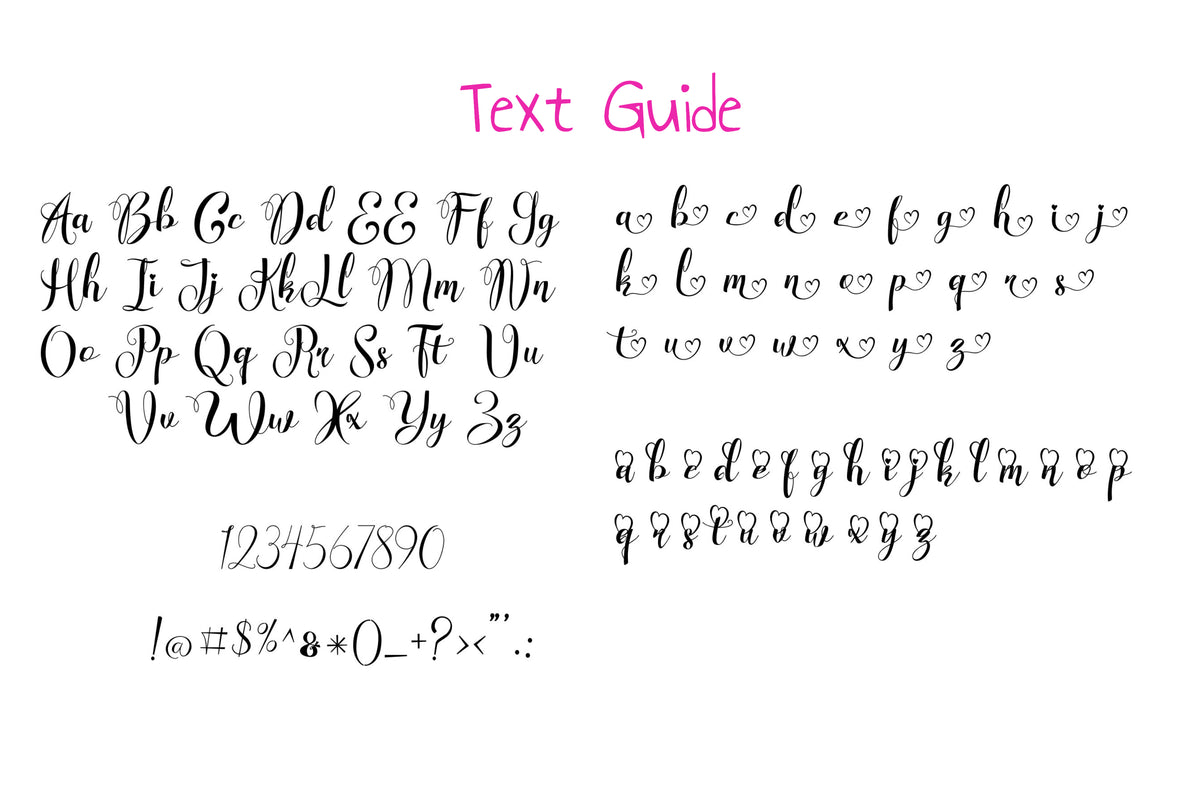 Text Guide
Aa Bb Cc Dd EE Ff Gg
Hh Ii Jj Kk Ll Mm Nn
Oo Pp Qq Rr Ss Tt Uu
Vv Ww Xx Yy Zz
1234567890
!@#$%^&*()_+?><"'.:
a b c d e f g h i j
k l m n o p q r s
t u v w x y z
a b c d e f g h i j k l m n o p
q r s t u v w x y z